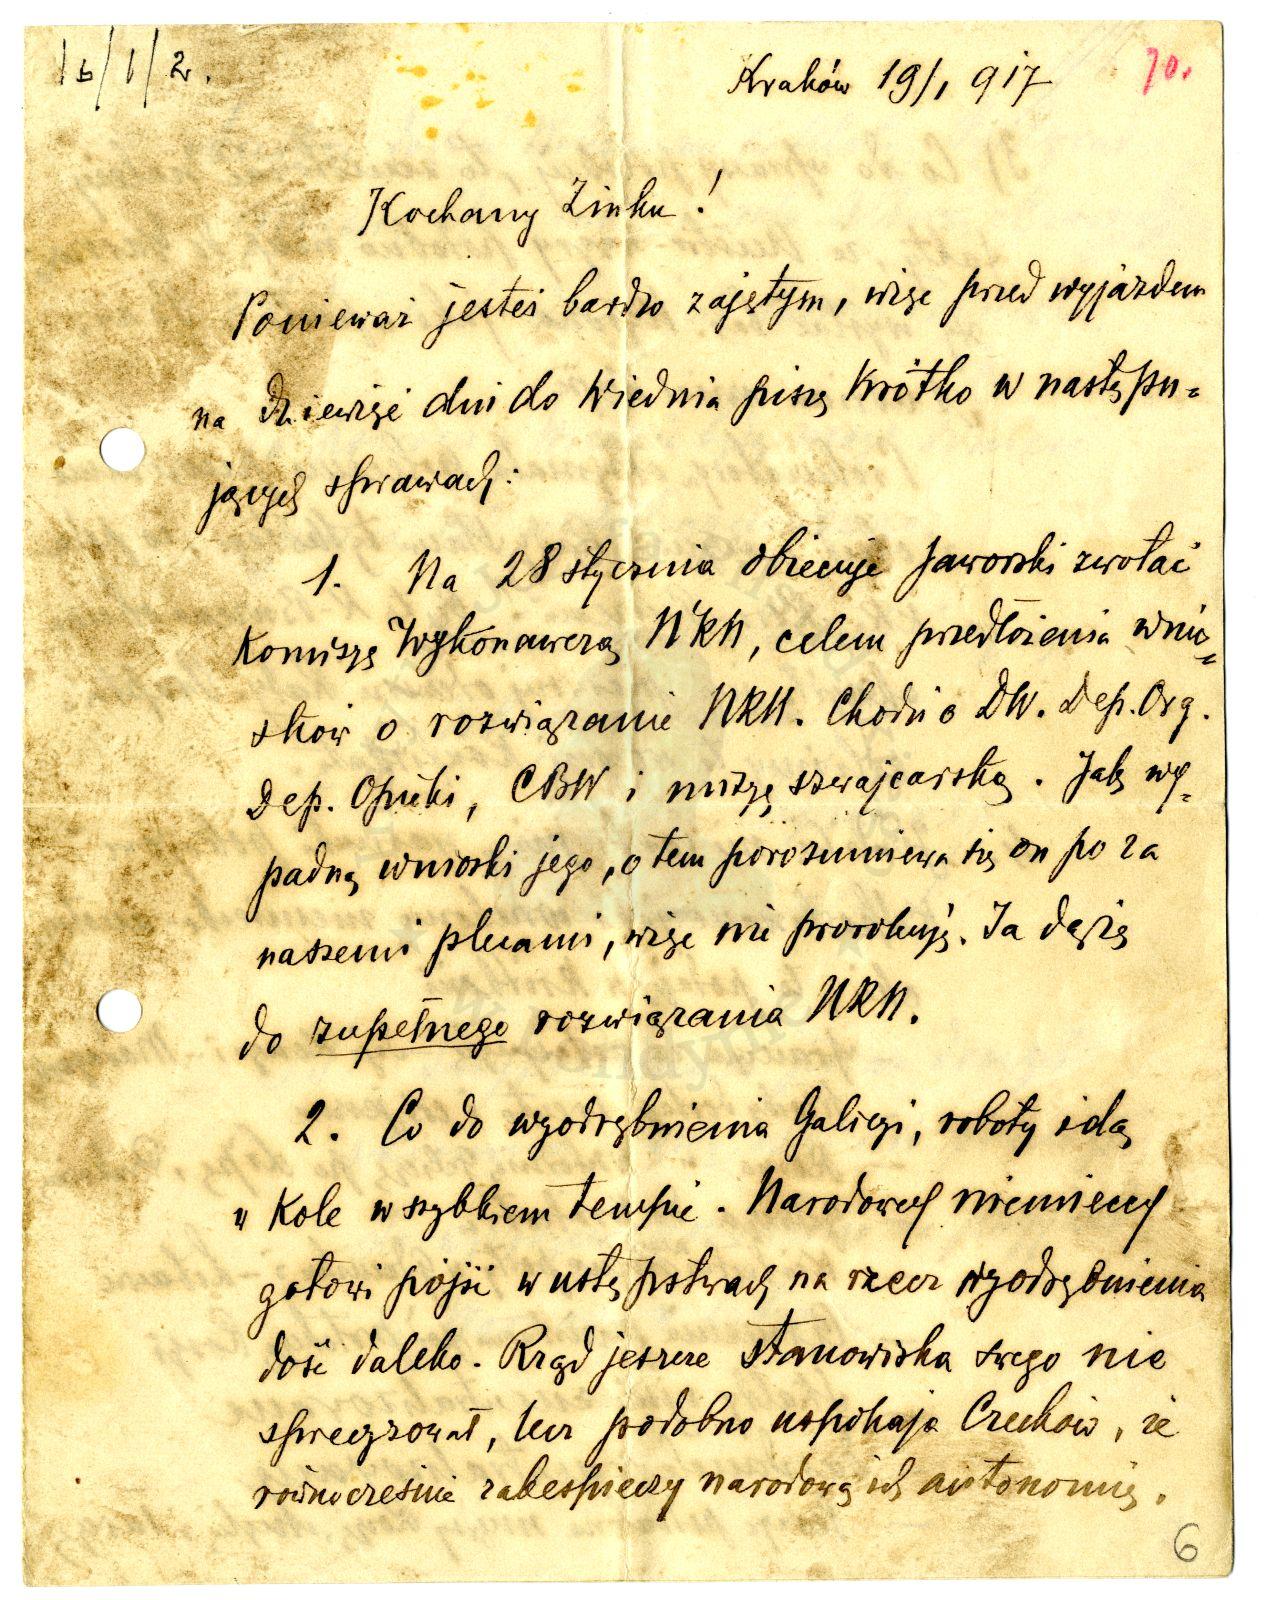 16/1/2.
Kraków 19/1 917
70.
Kochany Ziuku!
Ponieważ jesteś bardzo zajętym, więc przed wyjazdem
na dziewięć dni do Wiednia piszę krótko w następu-
jących sprawach:
1. Na 28 stycznia obiecuje Jaworski zwołać
Komisyę Wykonawczą NKN, celem przedłożenia wnio-
sków o rozwiązanie NKN. Chodzi o DW. Dep. Org.
Dep. Opieki, CBW i misyę szwajcarską. Jak wy-
padną wnioski jego, o tem porozumiewa się on po za
naszemi plecami, więc nie prorokuję. Ja dążę
do zupełnego rozwiązania NKN.
2. Co do wyodrębnienia Galicyi, roboty idą
w Kole w szybkiem tempie. Narodowcy niemieccy
gotowi pójść w ustępstwach na rzecz wyodrębnienia
dość daleko. Rząd jeszcze stanowiska swego nie
sprecyzował, lecz podobno uspokaja Czechów, że
równocześnie zabezpieczy narodową ich autonomię.
6